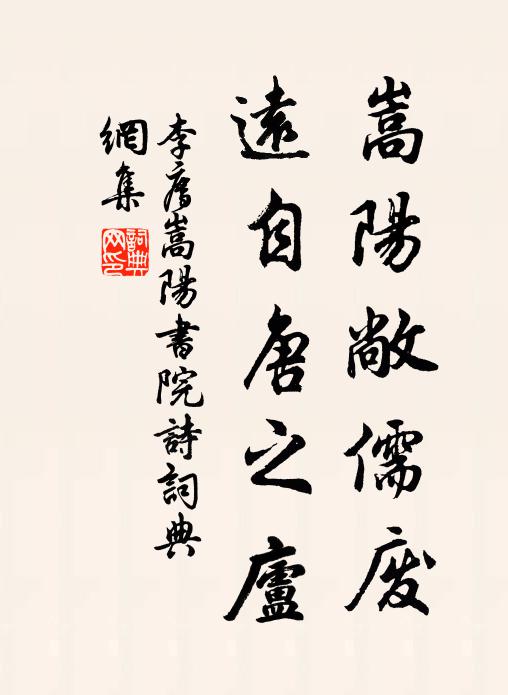 嵩陽敞儒
遠自唐之廬
李廌嵩陽書院詩詞典
網集
詞典網印